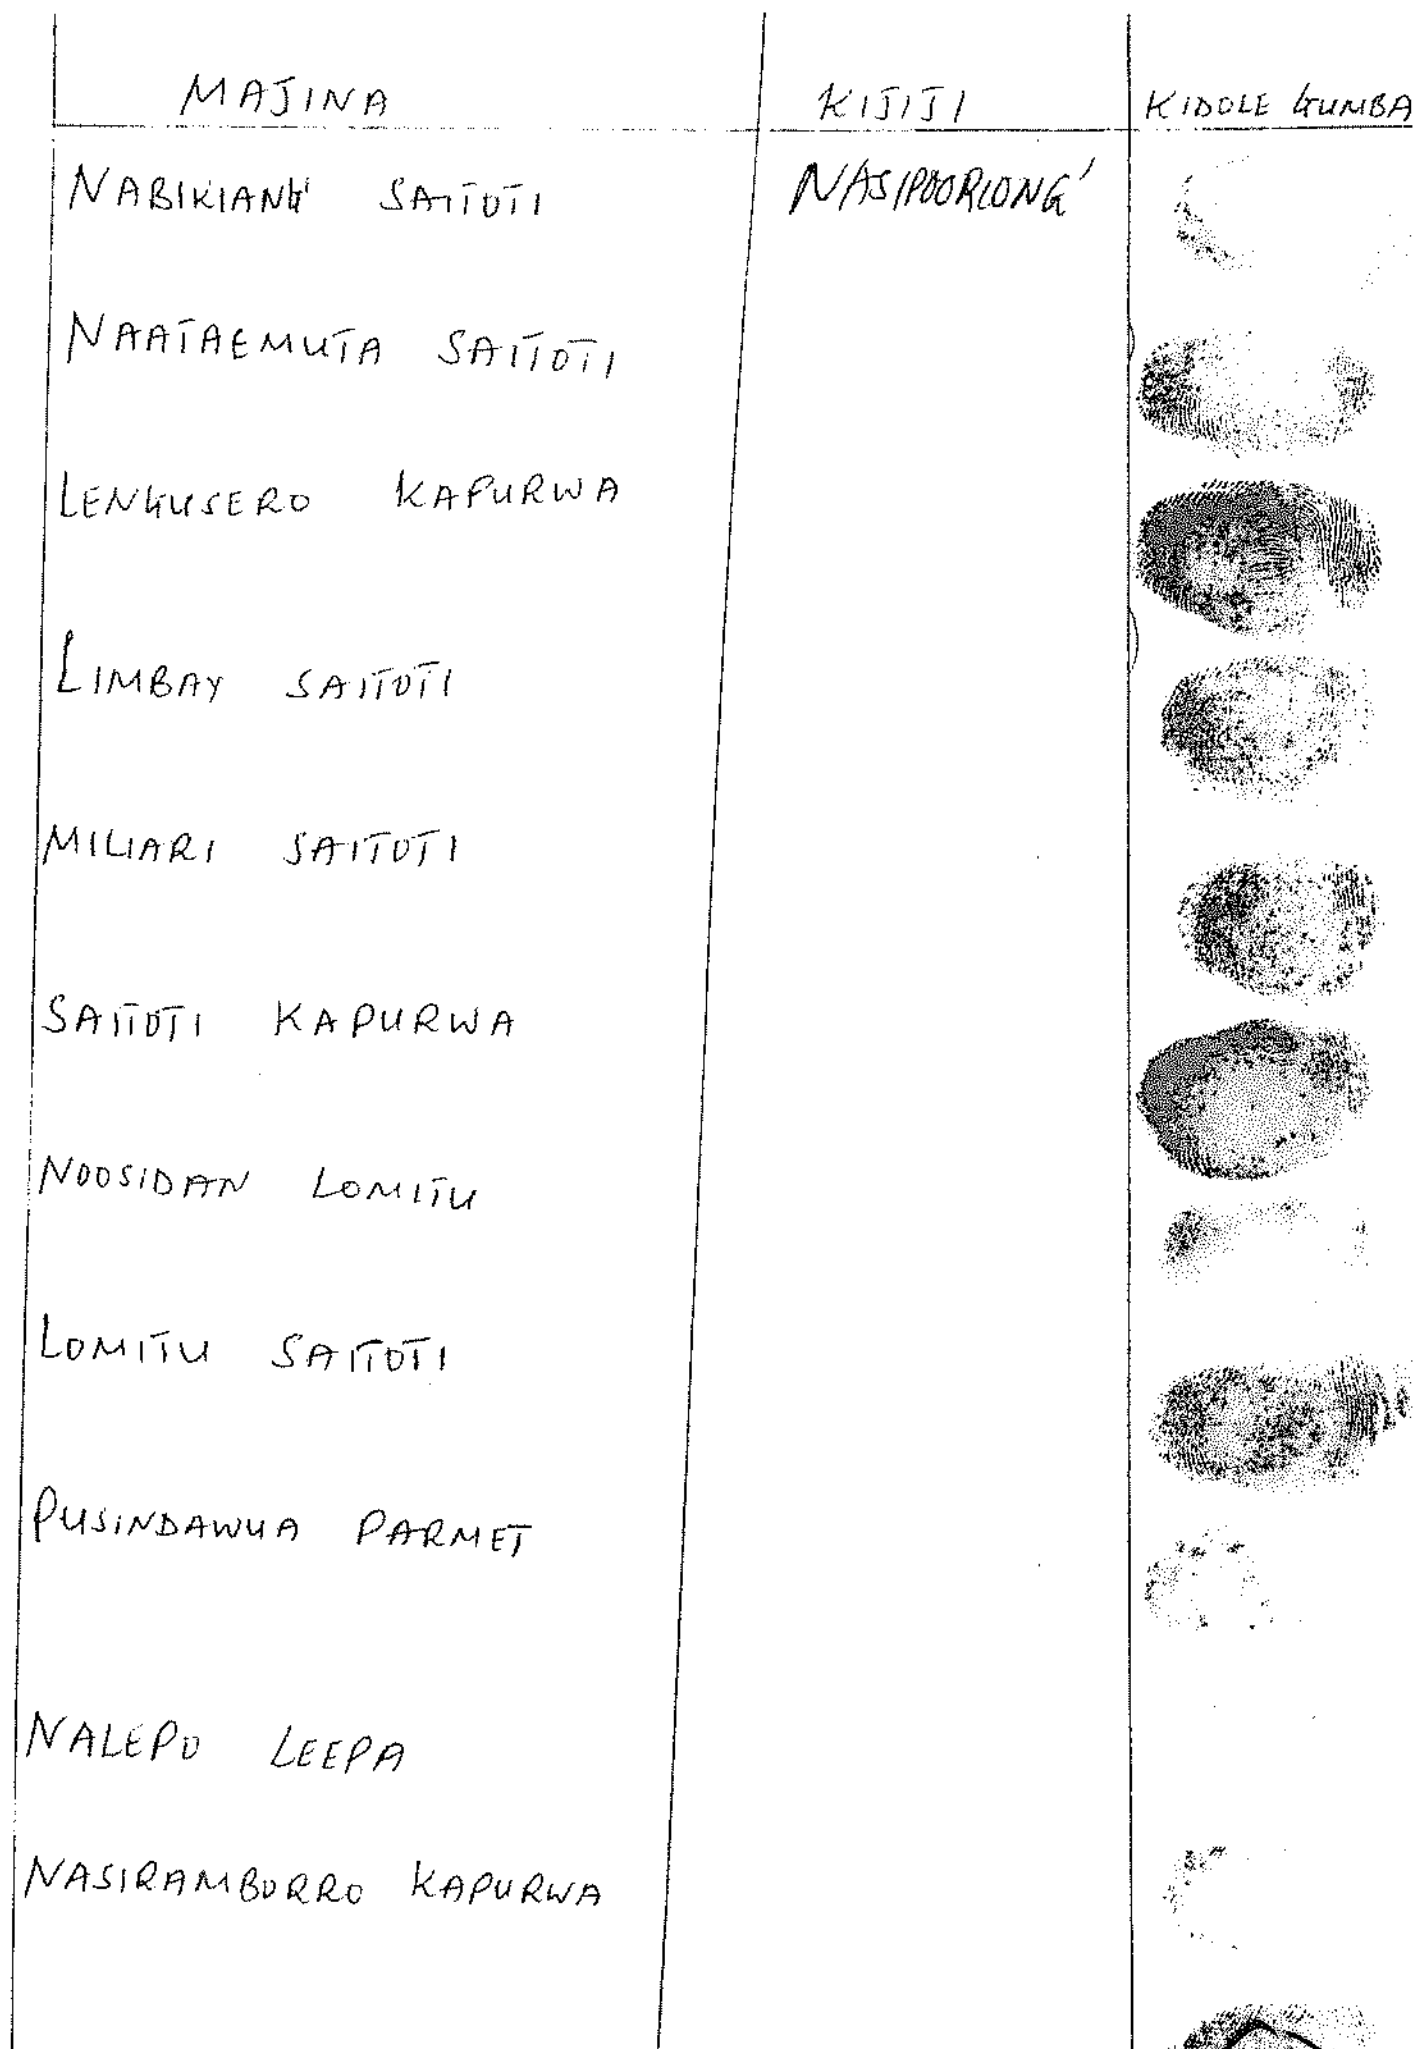 MAJINA KIJIJI KIDOLE GUMBA
NABIKIANG' SAITOTI NASIPOORIONG'
NAATAEMUTA SAITOTI
LENGUSERO KAPURWA
LIMBAY SAITOTI
MILIARI SAITOTI
SAITOTI KAPURWA
NOOSIDAN LOMITU
LOMITU SAITOTI
PUSINDAWUA PARMET
NALEPO LEEPA
NASIRAMBORRO KAPURWA